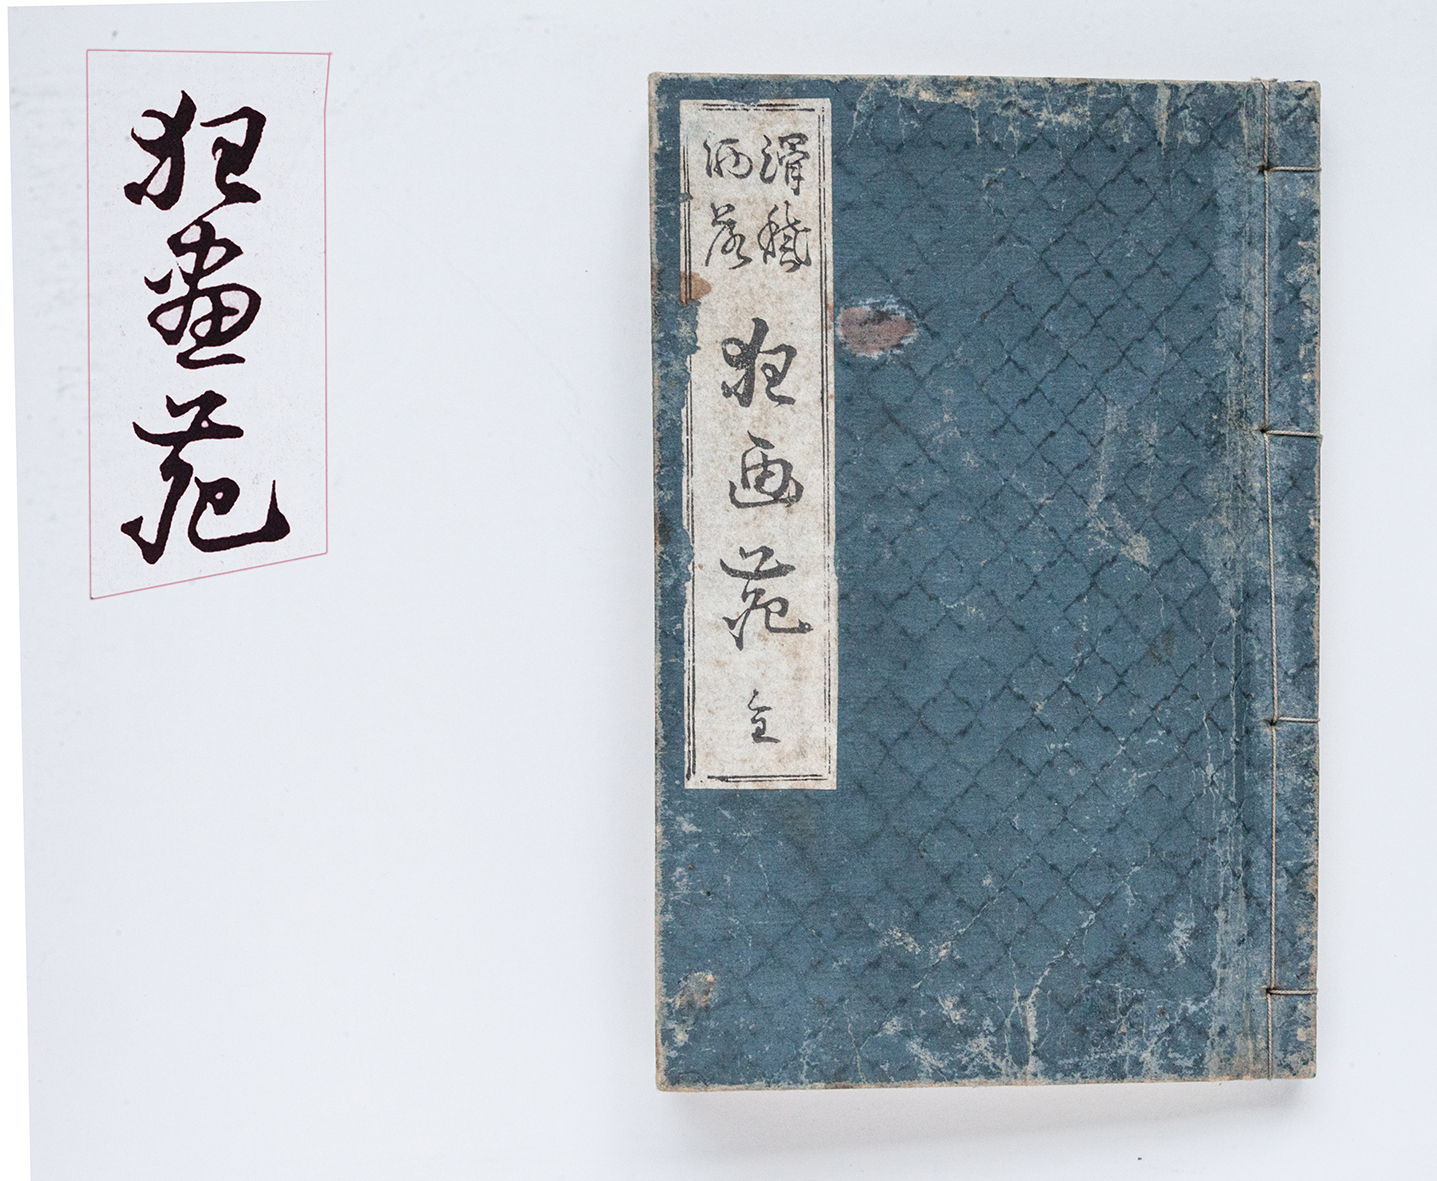 狂畫苑
滑稽
洒落
狂画苑
全